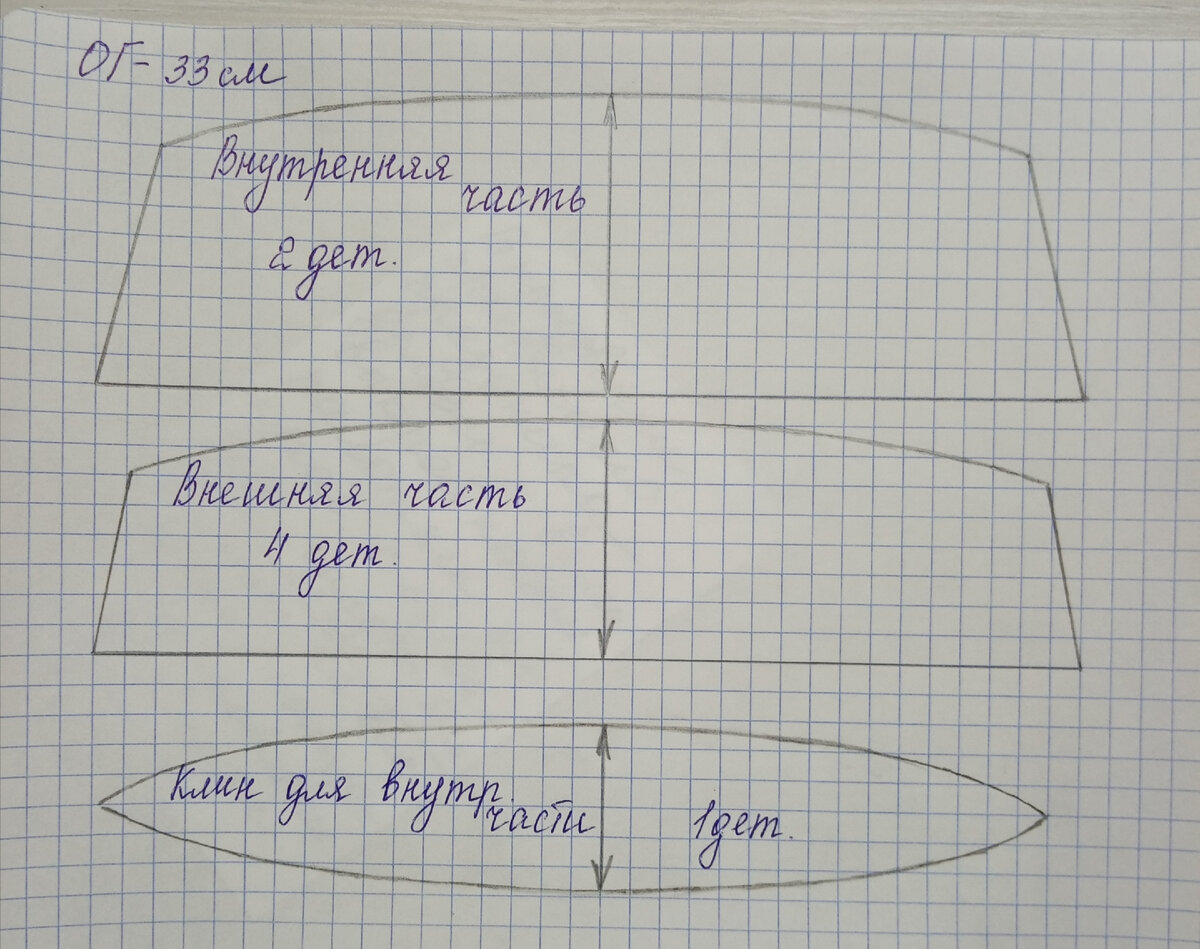 ОГ- 33 см
Внутренняя часть
2 дет.
Внешняя часть
4 дет.
Клин для внутр. части
1 дет.